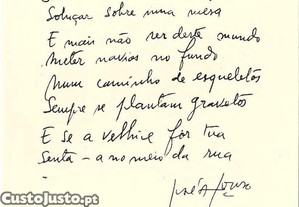 Soluçar sobre uma mesa
E mais não ser deste mundo
Meter navios no fundo
Num caminho de esqueletos
Sempre se plantam gravetos
E se a velhice for tua
Senta-a no meio da rua
José Afonso
CustoJusto.pt